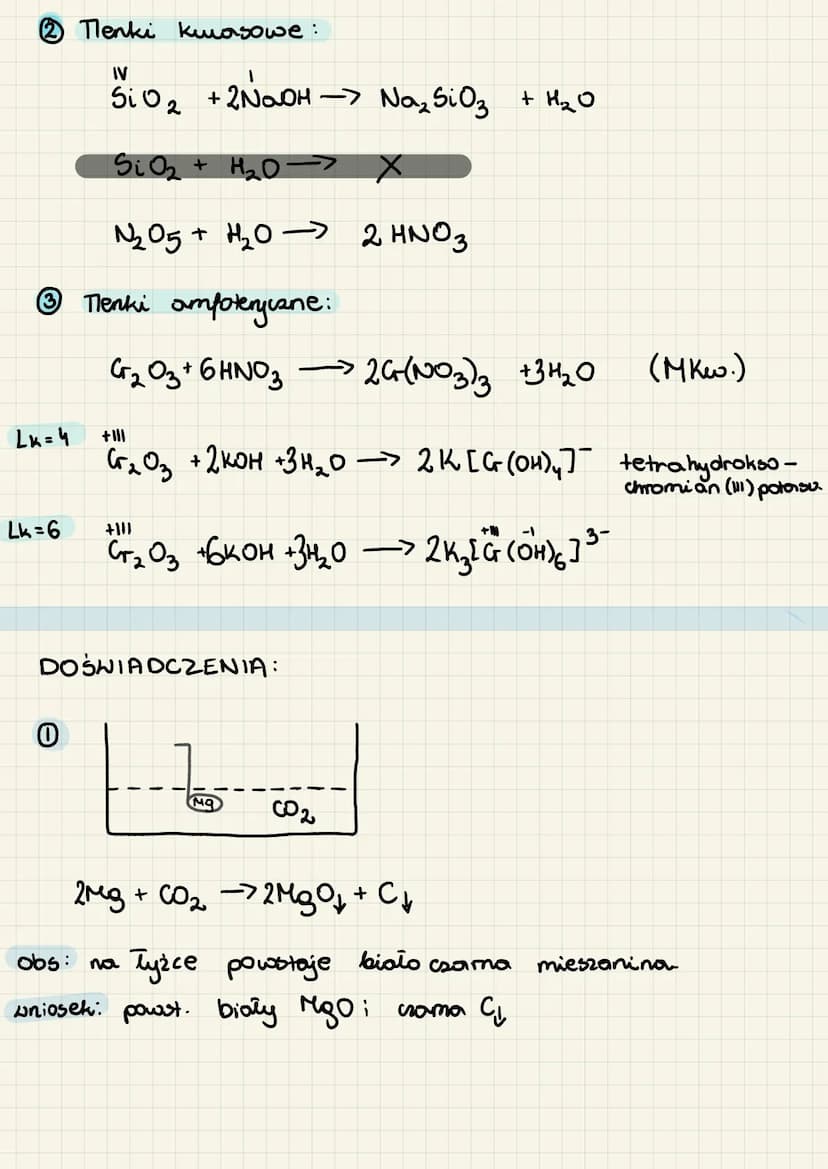 ② Tlenki kwasowe:
IV I
SiO₂ + 2NaOH → Na₂SiO₃ + H₂O
SiO₂ + H₂O → X
N₂O₅ + H₂O → 2 HNO₃
③ Tlenki amfoteryczne:
Cr₂O₃ + 6HNO₃ → 2Cr(NO₃)₃ + 3H₂O (MKw.)
Lk=4 +III
Cr₂O₃ + 2KOH + 3H₂O → 2K[Cr(OH)₄]⁻ tetrahydrokso–
chromian (III) potasu
Lk=6 +III +III -I
Cr₂O₃ + 6KOH + 3H₂O → 2K₃[Cr(OH)₆]³⁻
DOŚWIADCZENIA:
①
Mg CO₂
2Mg + CO₂ → 2MgO↓ + C↓
obs: na łyżce powstaje biało czarna mieszanina
wniosek: powst. biały MgO i czarna C↓